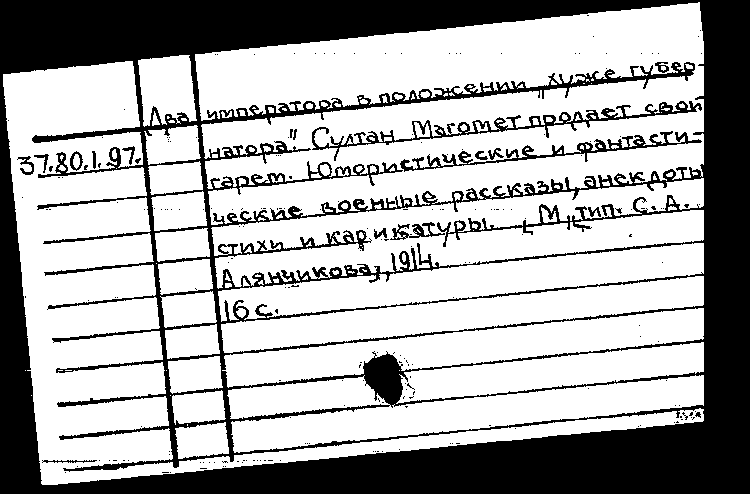 Два императора в положении „хуже губер-
37.80.1.97.
натора". Султан Магомет продает свой
гарем. Юмористические и фантасти-
ческие военные рассказы, анекдоты
стихи и карикатуры. [М], тип. С. А.
Алянчикова], 1914.
16 с.